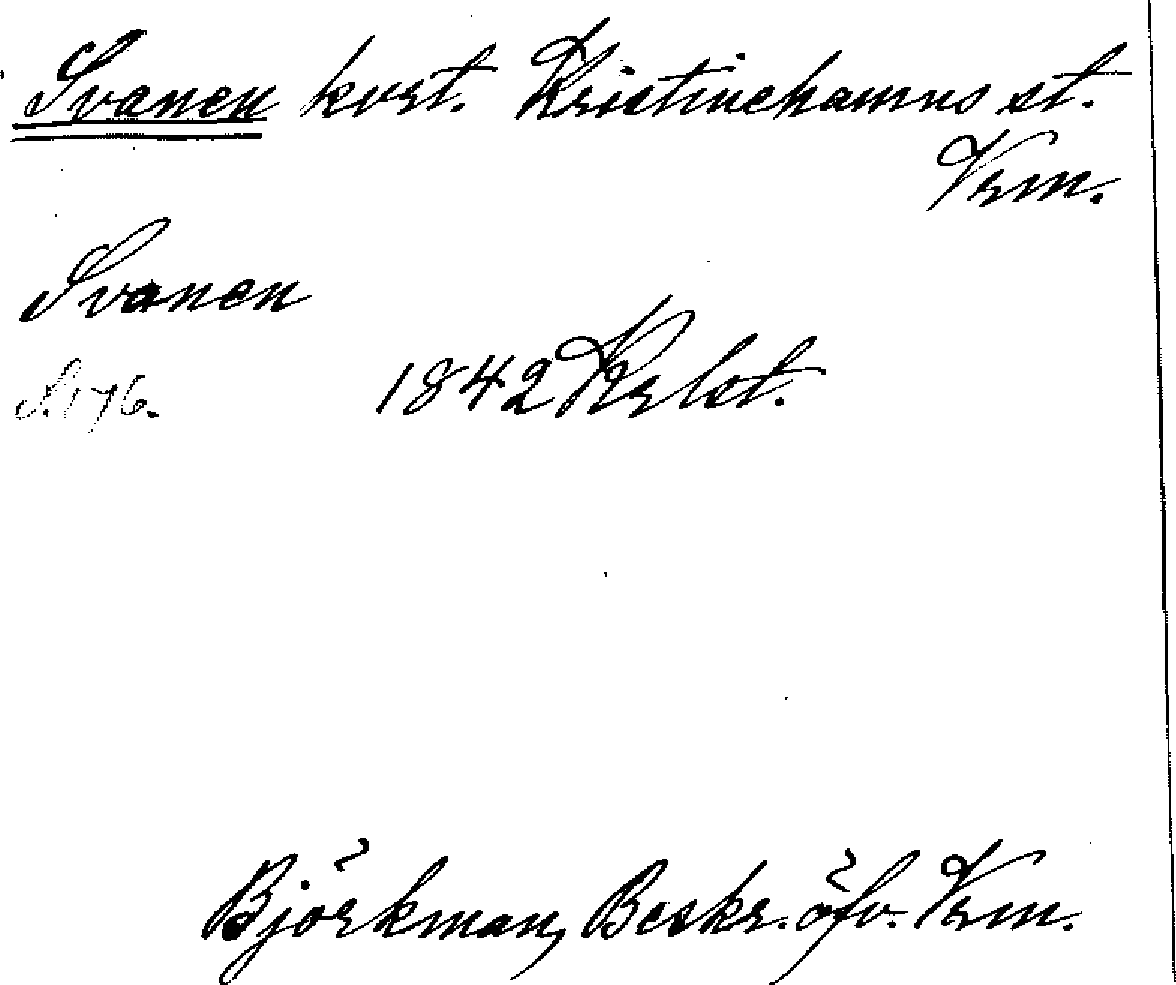 Svanen kvrt. Kristinehamns st.
Vrm.
Svanen
S. 176. 1842 Krlst.
Björkman, Beskr. öfv. Vrm.